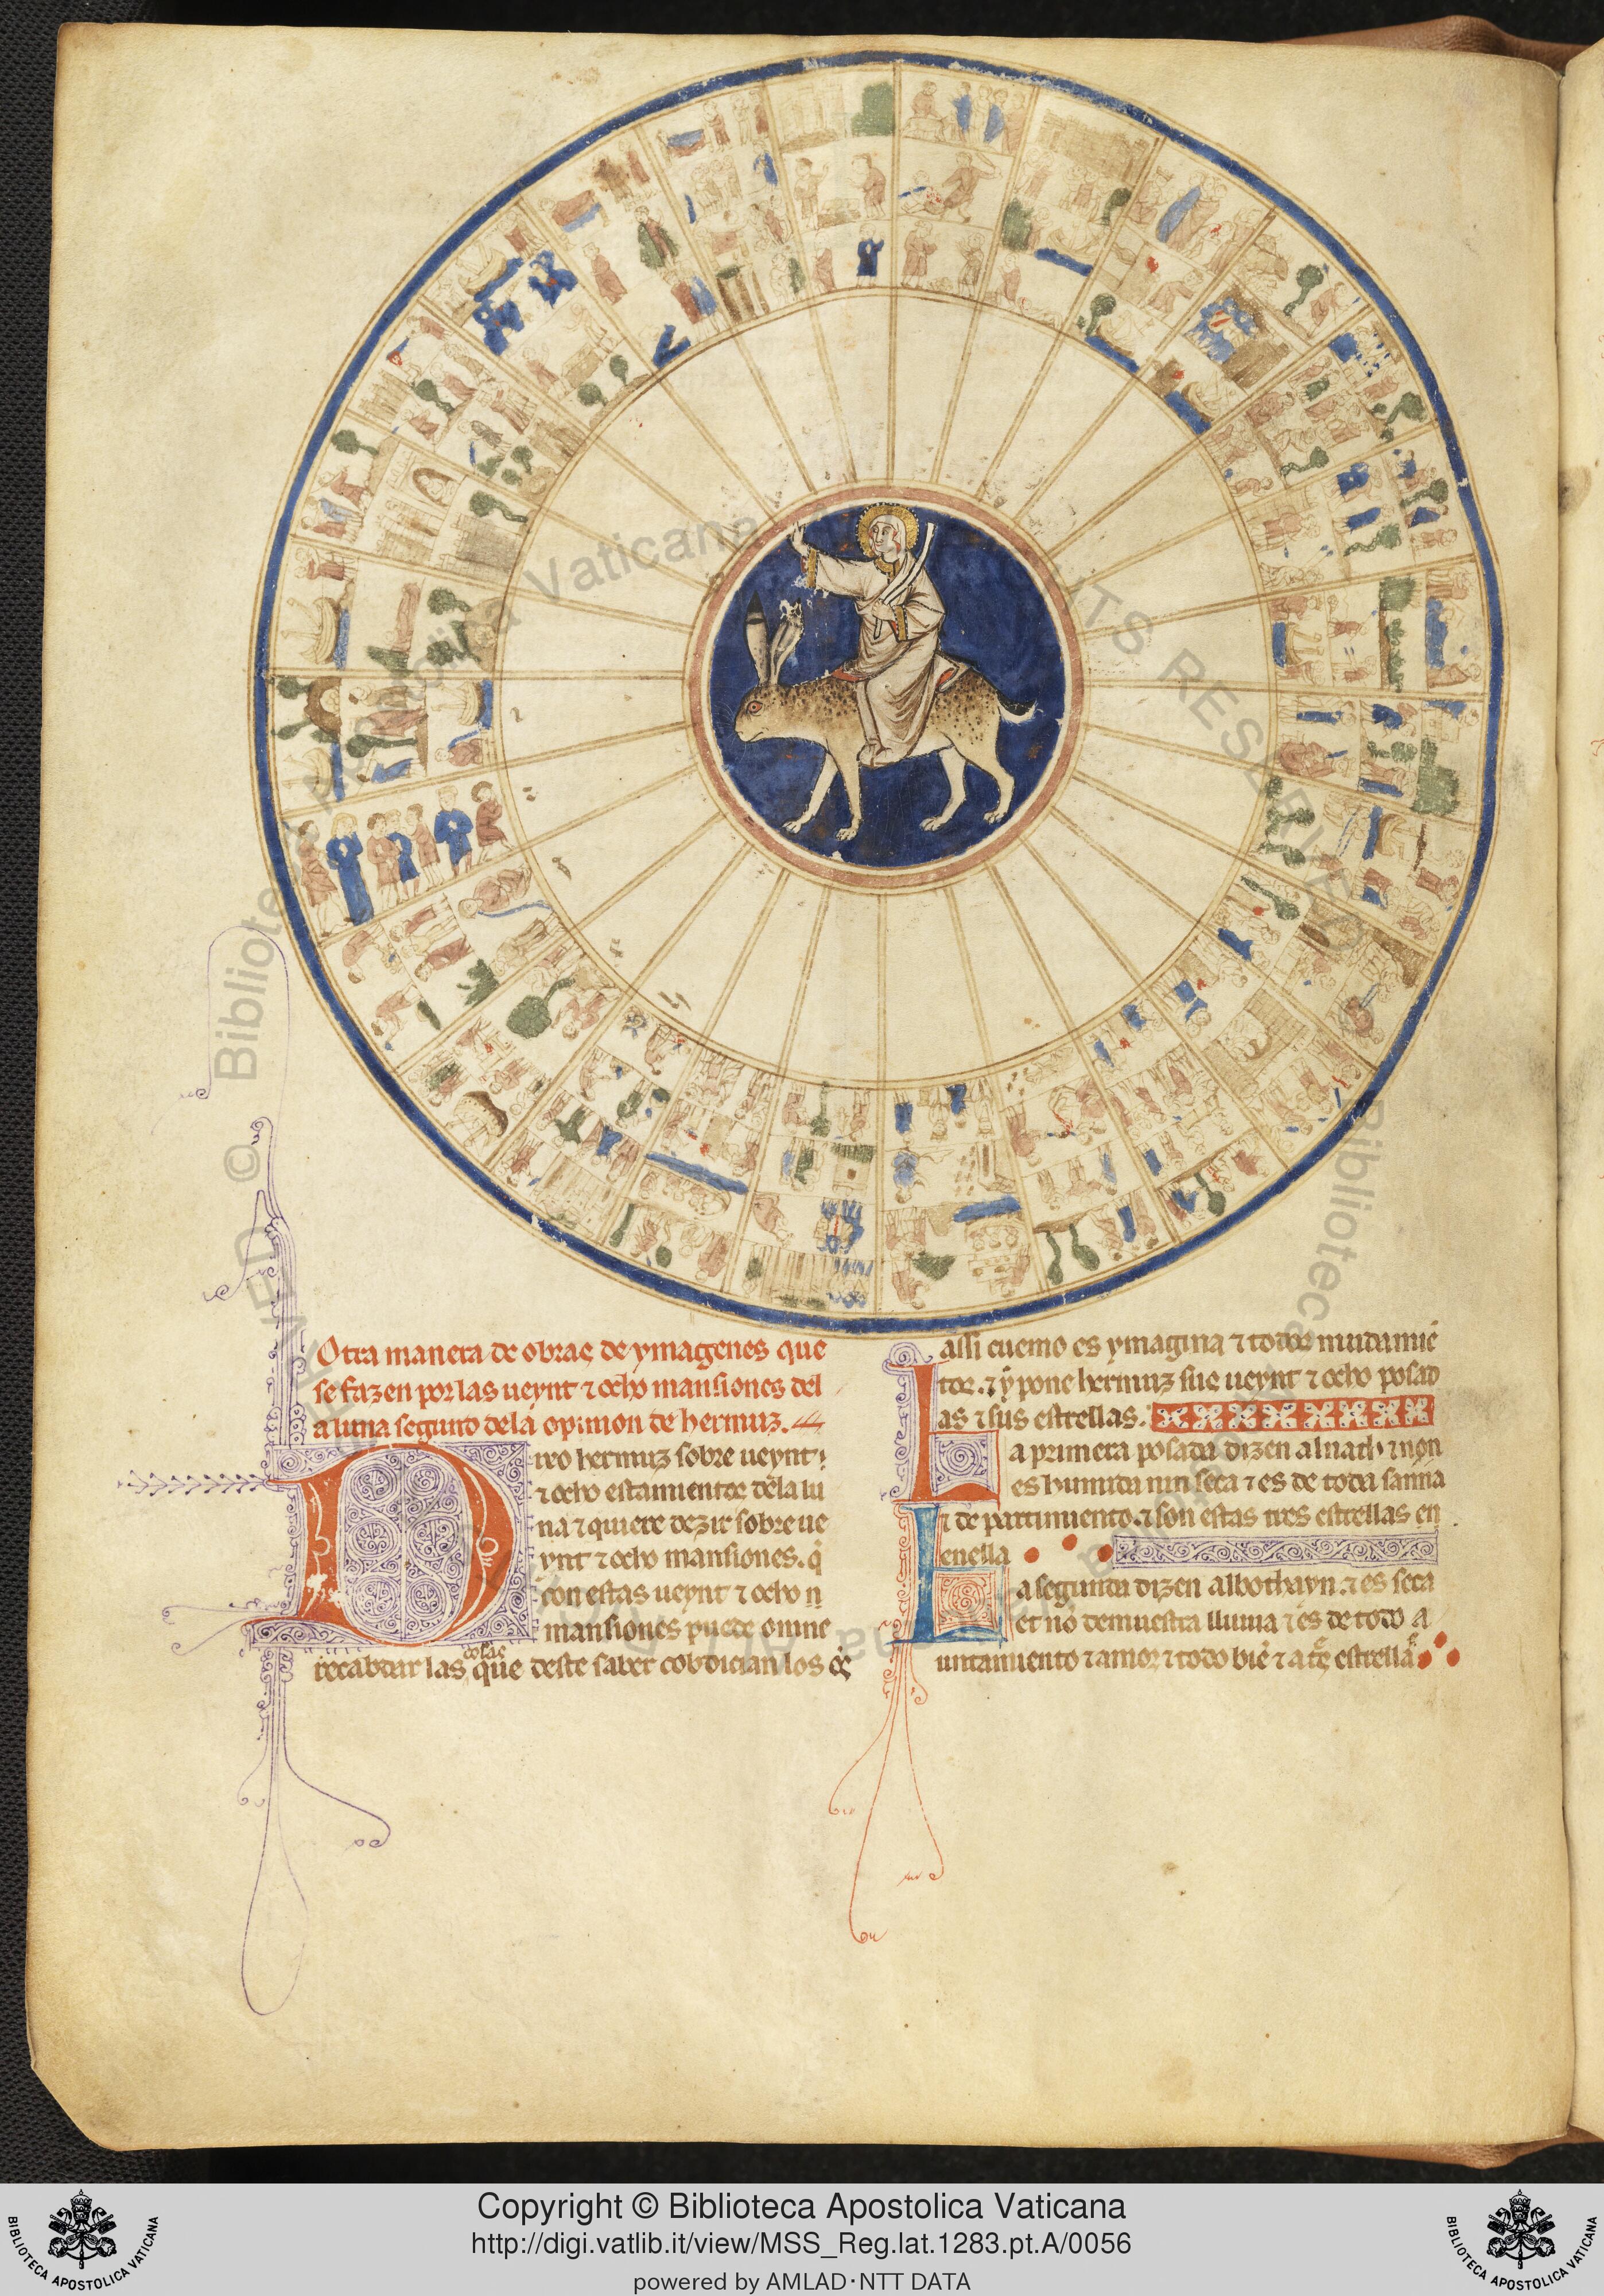 Otra manera de obrar de ymagenes que
se fazen por las ueynt ⁊ ocho mansiones del
a luna segund dela opinion de hermuz.
Dixo hermuz sobre ueynt
⁊ ocho estamientos dela lu
na ⁊ quiere dezir sobre ue
ynt ⁊ ocho mansiones. q̇
con estas ueynt ⁊ ocho
mansiones puede omne
cosas
recabdar las que deste saber cobdician los
assi cuemo es ymagina ⁊ todos mudamiē
tos. ⁊ y pone hermuz sus ueynt ⁊ ocho posad
as ⁊ sus estrellas.
La primera posada dizen alnath ⁊ non
es humida nin seca ⁊ es de toda sanna
⁊ de partimiento. ⁊ son estas tres estrellas en
enella
La segunda dizen albothayn. ⁊ es seca
et nō demuestra lluuia ⁊ es de todo a
untamiento ⁊ amor ⁊ todo biē ⁊ a estrella
© Biblioteca Apostolica Vaticana ALL RIGHTS RESERVED
Copyright © Biblioteca Apostolica Vaticana
http://digi.vatlib.it/view/MSS_Reg.lat.1283.pt.A/0056
powered by AMLAD·NTT DATA
BIBLIOTECA APOSTOLICA VATICANA
BIBLIOTECA APOSTOLICA VATICANA